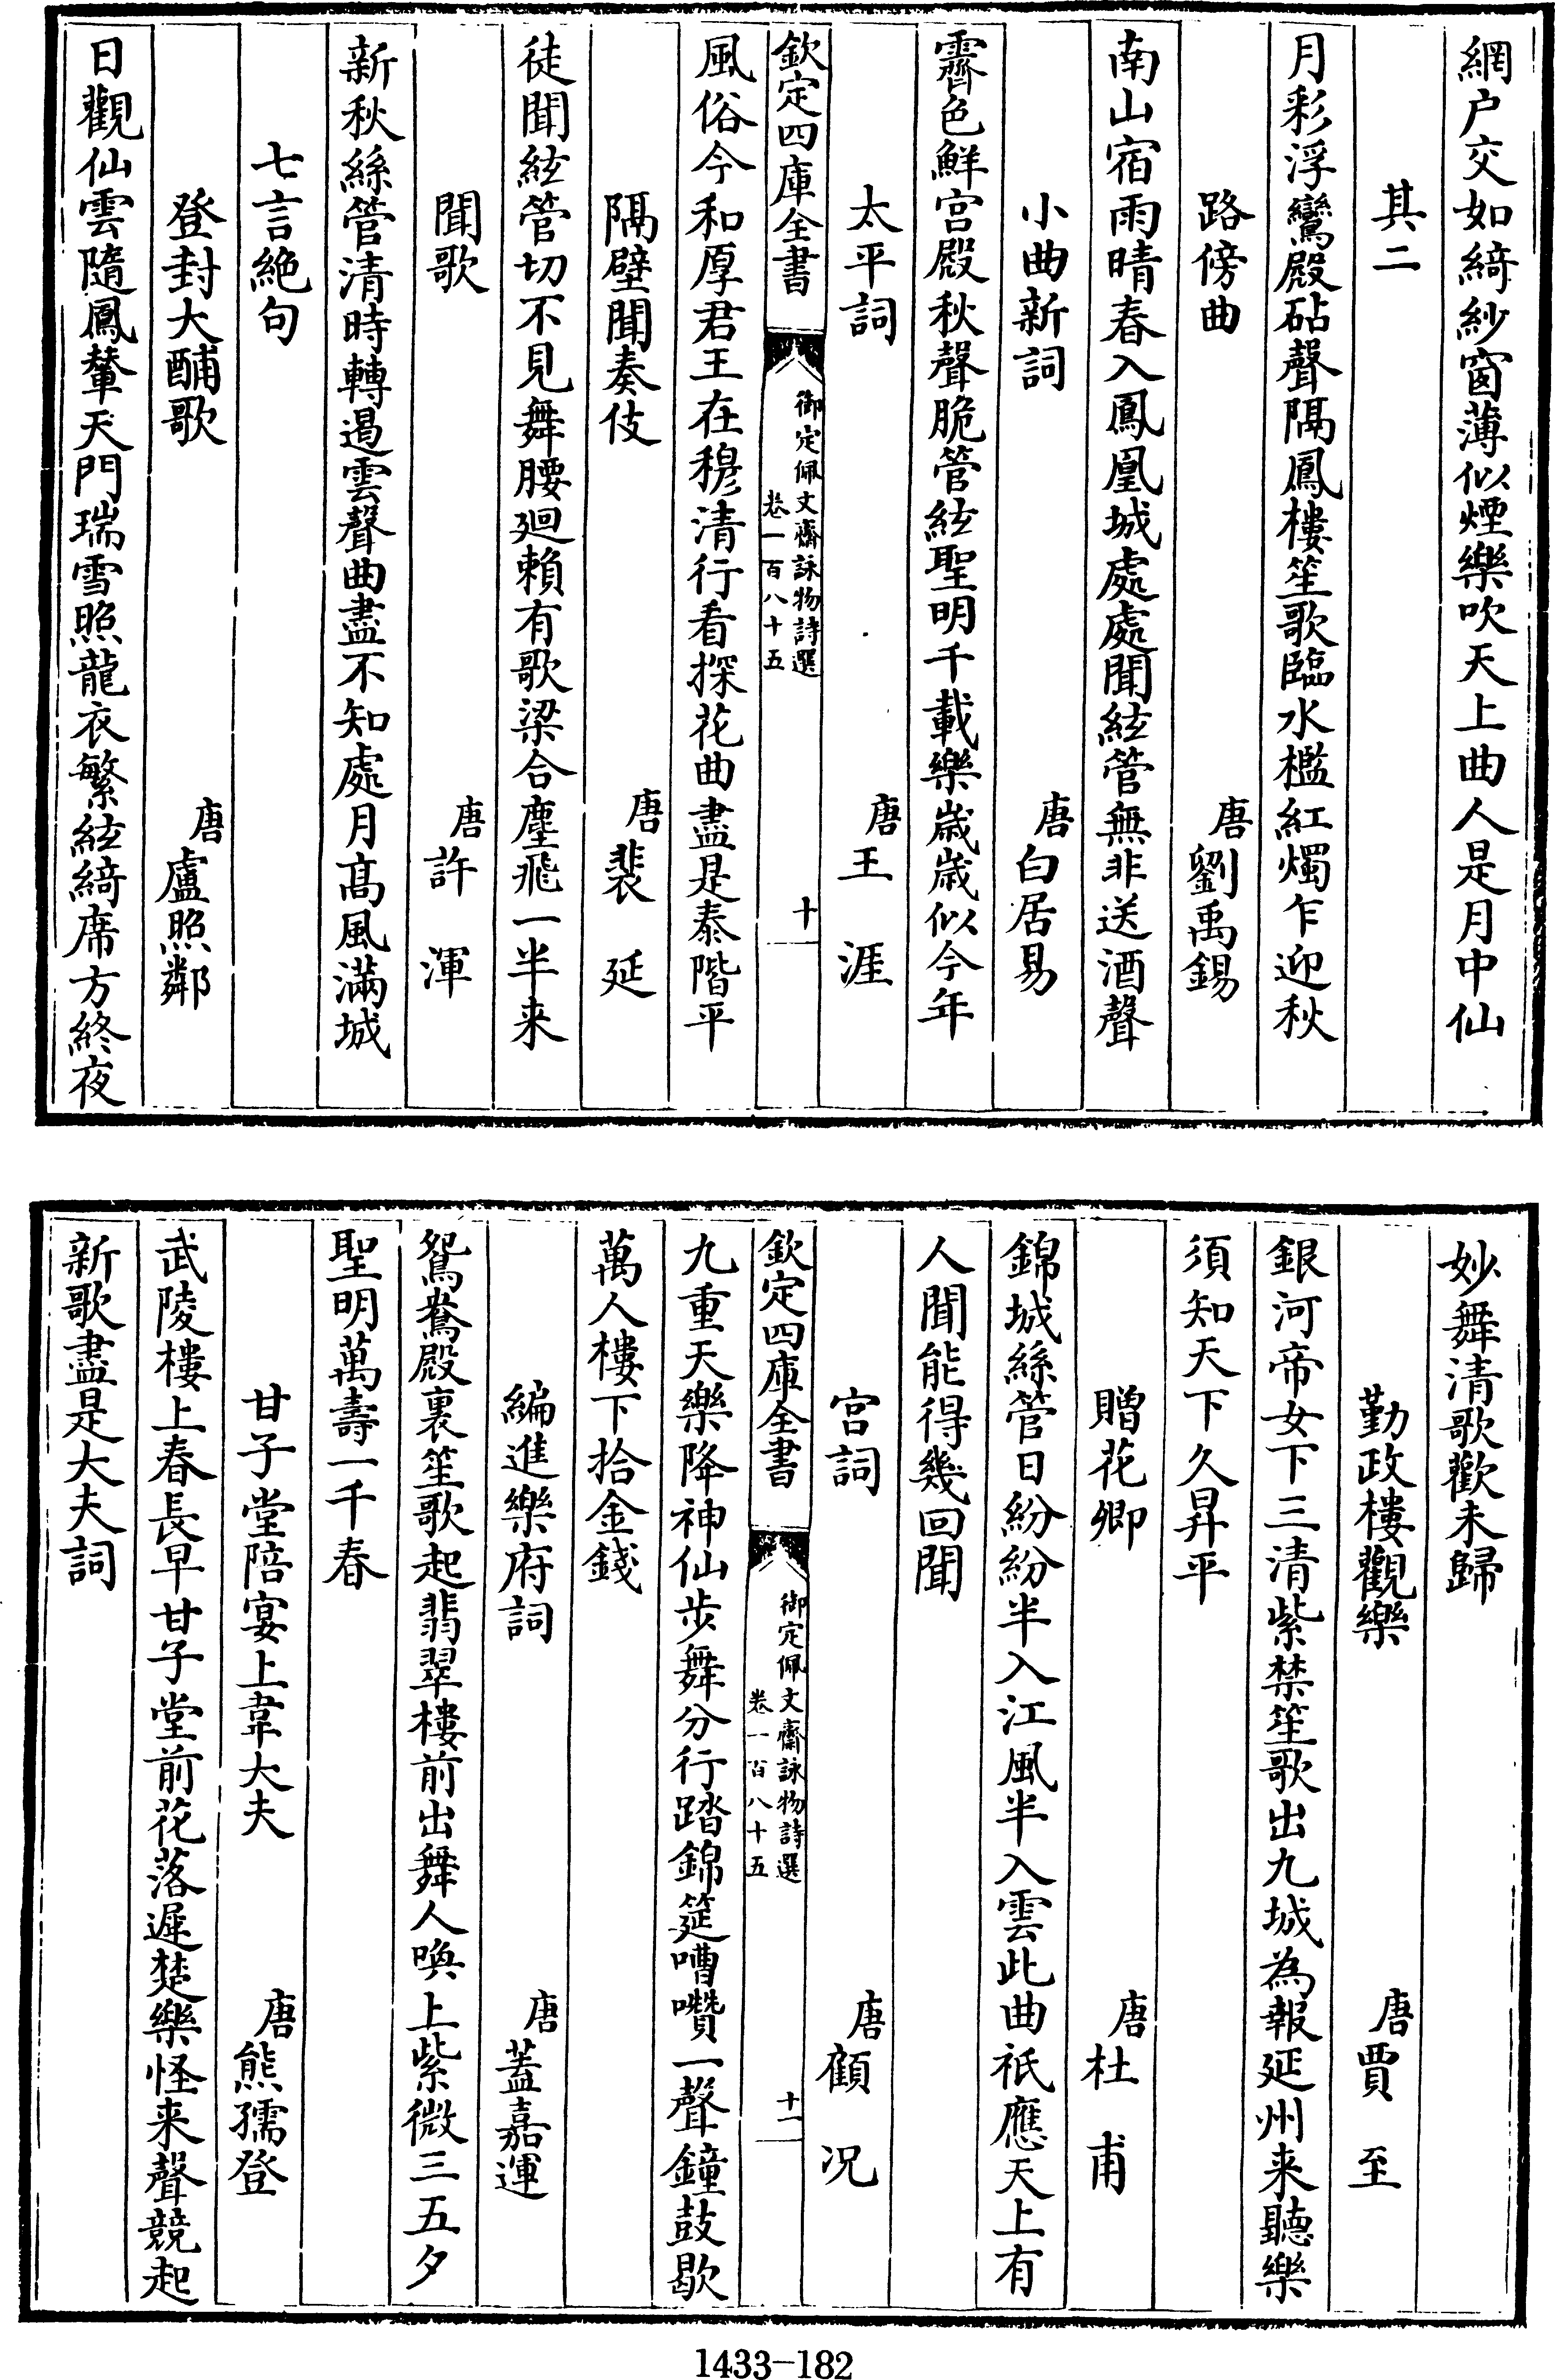 網户交如綺紗窗薄似煙樂吹天上曲人是月中仙
其二
月彩浮鸞殿砧聲隔鳳樓笙歌臨水檻紅燭乍迎秋
路傍曲 唐劉禹錫
南山宿雨晴春入鳳凰城處處聞絃管無非送酒聲
小曲新詞 唐白居易
霽色鮮宫殿秋聲脆管絃聖明千載樂歳歳似今年
太平詞 唐王涯
欽定四庫全書 御定佩文齋詠物詩選 卷一百八十五 十
風俗今和厚君王在穆清行看探花曲盡是泰階平
隔壁聞奏伎 唐裴延
徒聞絃管切不見舞腰廻賴有歌梁合塵飛一半来
聞歌 唐許渾
新秋絲管清時轉遏雲聲曲盡不知處月髙風滿城
七言絶句
登封大酺歌 唐盧照鄰
日觀仙雲隨鳳輦天門瑞雪照龍衣繁絃綺席方終夜
妙舞清歌歡未歸
勤政樓觀樂 唐賈至
銀河帝女下三清紫禁笙歌出九城為報延州来聽樂
須知天下久昇平
贈花卿 唐杜甫
錦城絲管日紛紛半入江風半入雲此曲祇應天上有
人聞能得幾回聞
宫詞 唐顧况
欽定四庫全書 御定佩文齋詠物詩選 卷一百八十五 十一
九重天樂降神仙步舞分行踏錦筵嘈囋一聲鐘鼓歇
萬人樓下拾金錢
編進樂府詞 唐蓋嘉運
鴛鴦殿裏笙歌起翡翠樓前出舞人喚上紫微三五夕
聖明萬壽一千春
甘子堂陪宴上韋大夫 唐熊孺登
武陵樓上春長早甘子堂前花落遲楚樂怪来聲競起
新歌盡是大夫詞
1433-182